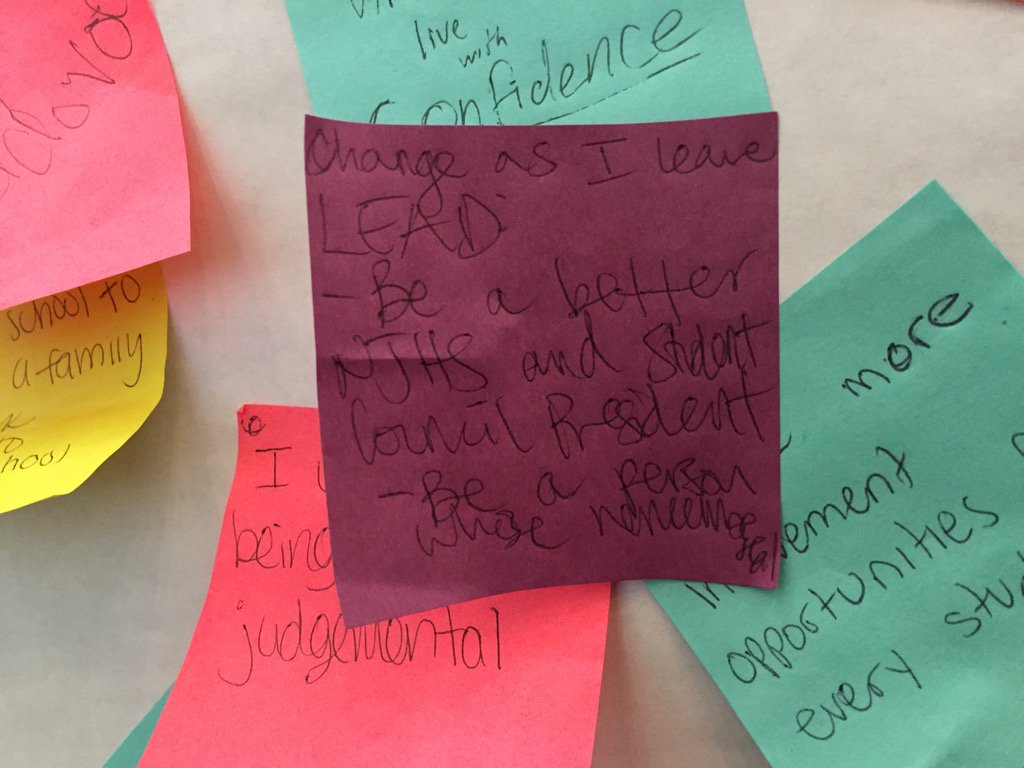 live
with
Confidence
Change as I leave
LEAD:
- Be a better
NJHS and Student
Council President
- Be a person
whose
school to
a family
I
being
judgemental
more
opportunities
every